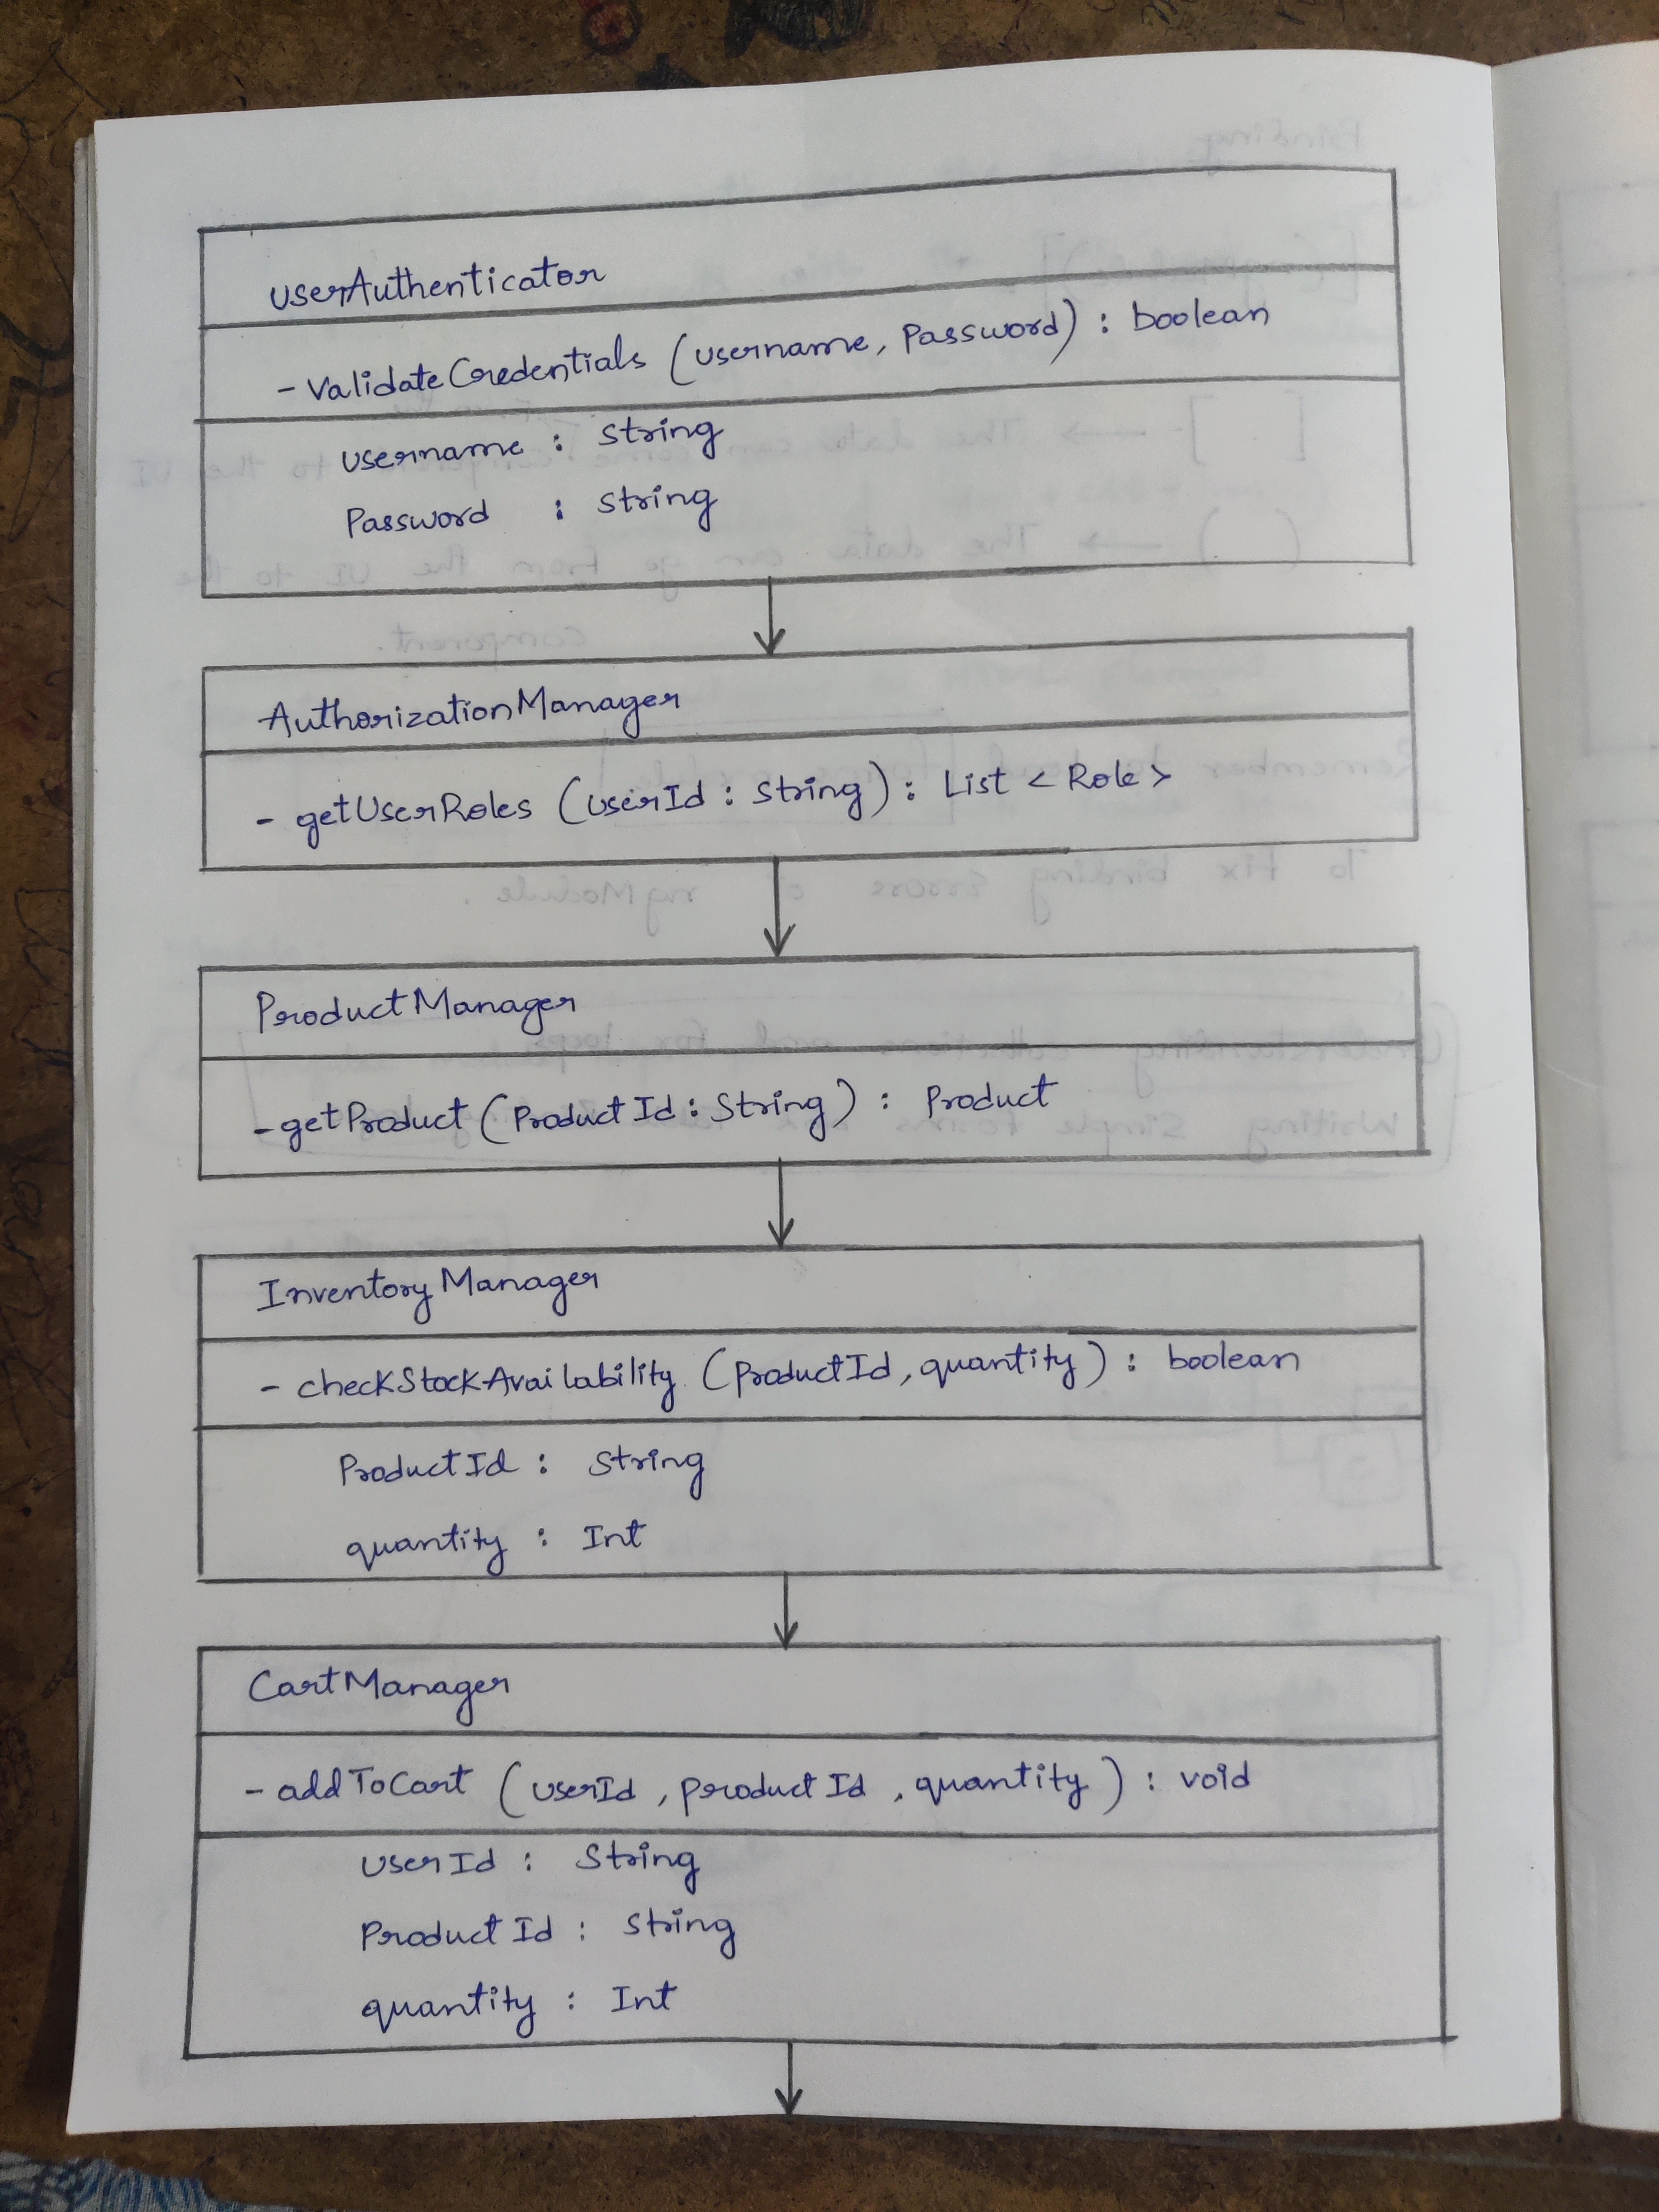 userAuthenticator
- ValidateCredentials (username, Password) : boolean
username : String
Password : String
AuthorizationManager
- getUserRoles (userId : String) : List < Role >
ProductManager
- getProduct (ProductId : String) : Product
InventoryManager
- checkStockAvailability (ProductId, quantity) : boolean
ProductId : String
quantity : Int
CartManager
- addToCart (userId, productId, quantity) : void
userId : String
ProductId : String
quantity : Int